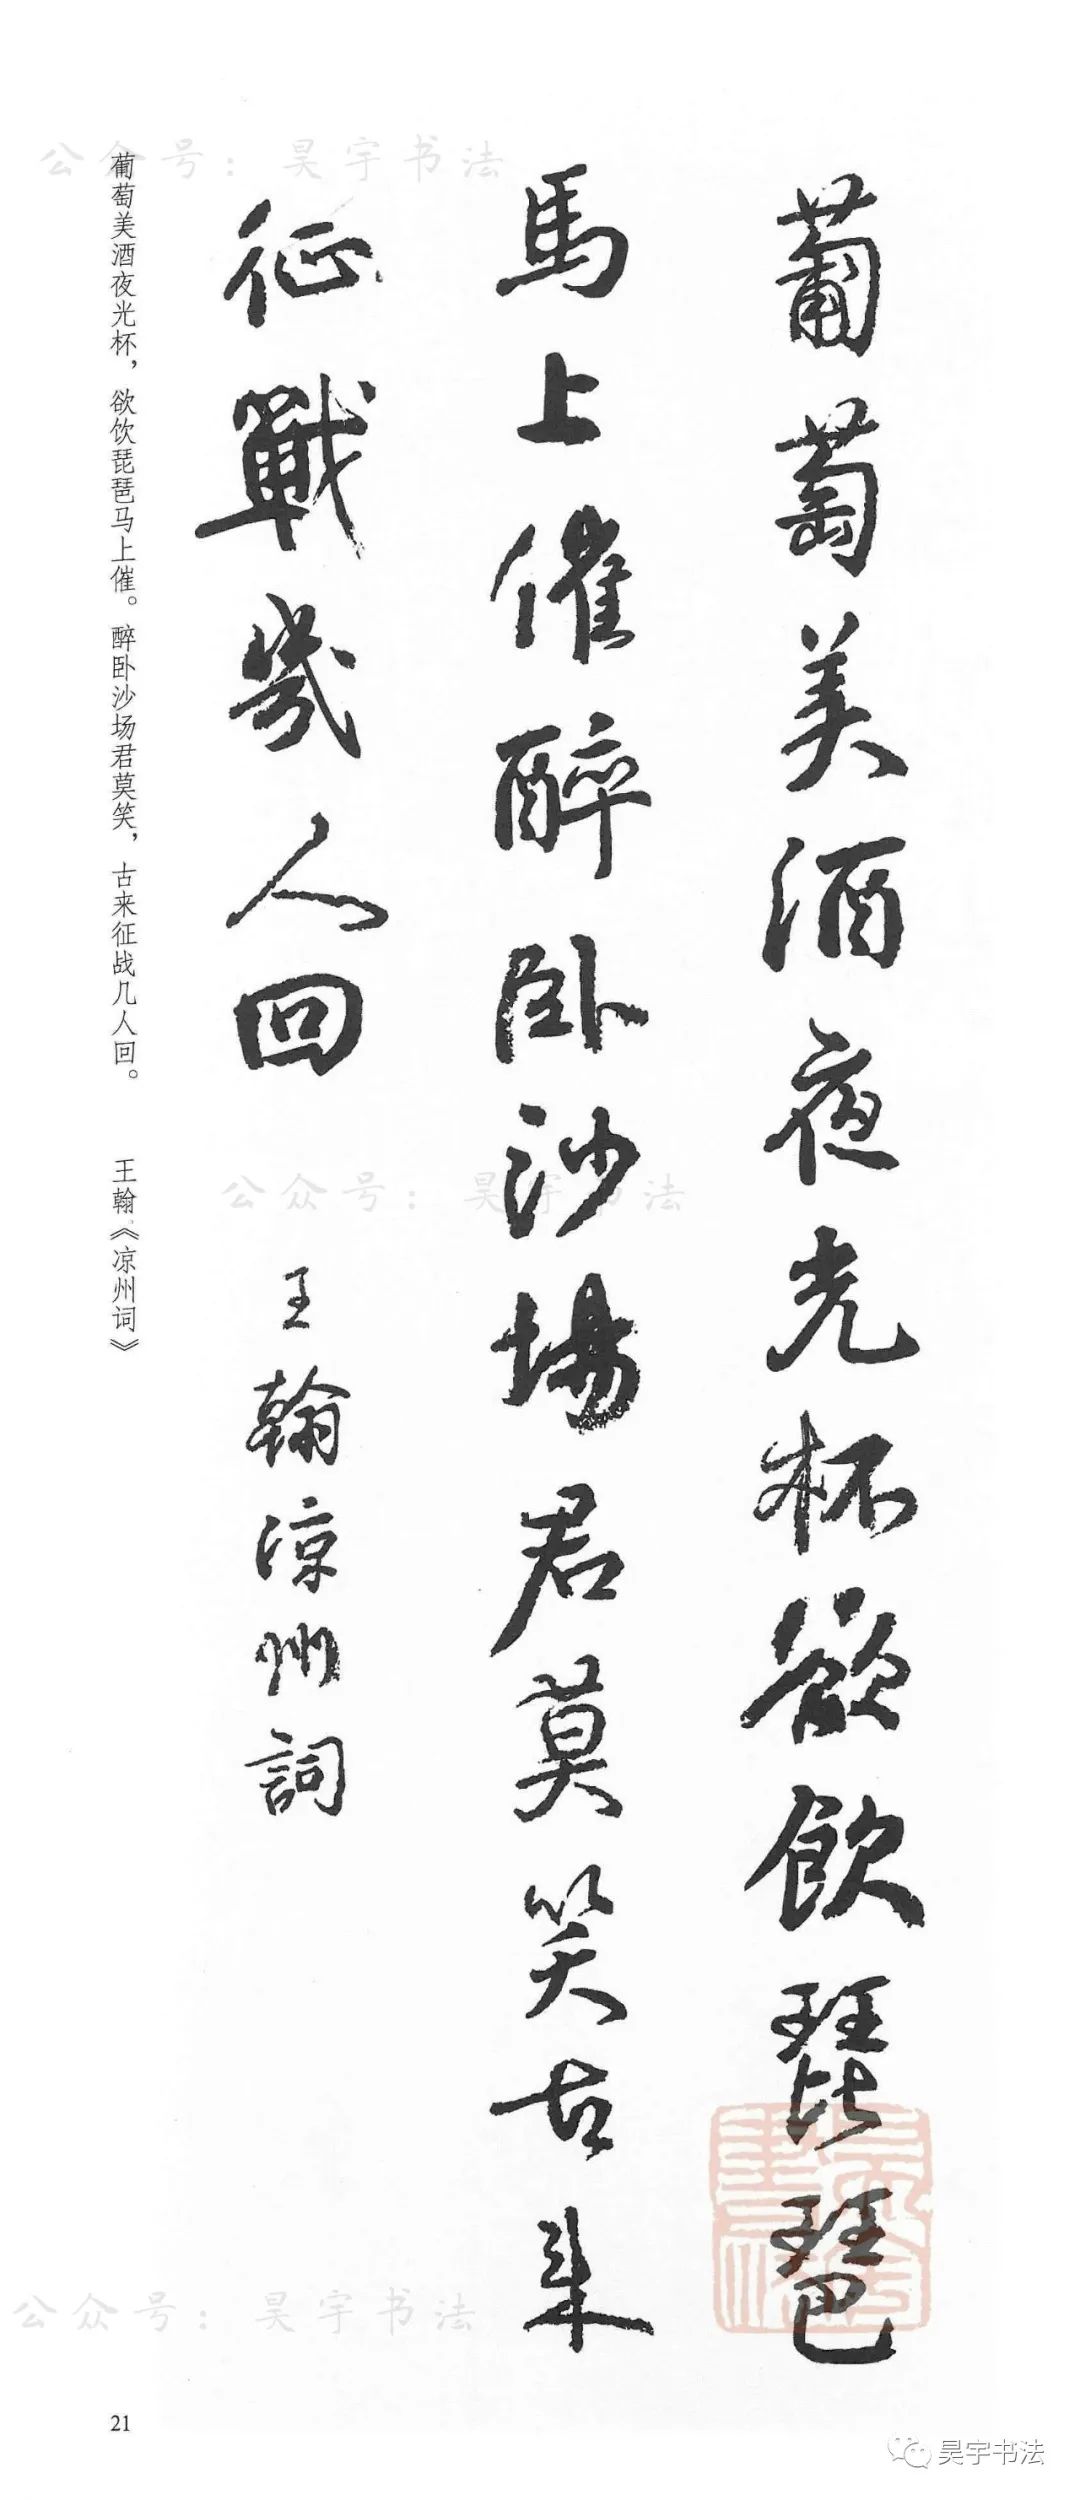 葡萄美酒夜光杯欲飲琵琶
馬上催醉卧沙場君莫笑古來
征戰幾人回
王翰涼州詞
葡萄美酒夜光杯，欲饮琵琶马上催。醉卧沙场君莫笑，古来征战几人回。 王翰《凉州词》
公众号：昊宇书法
公众号：昊宇书法
公众号：昊宇书法
21
昊宇书法